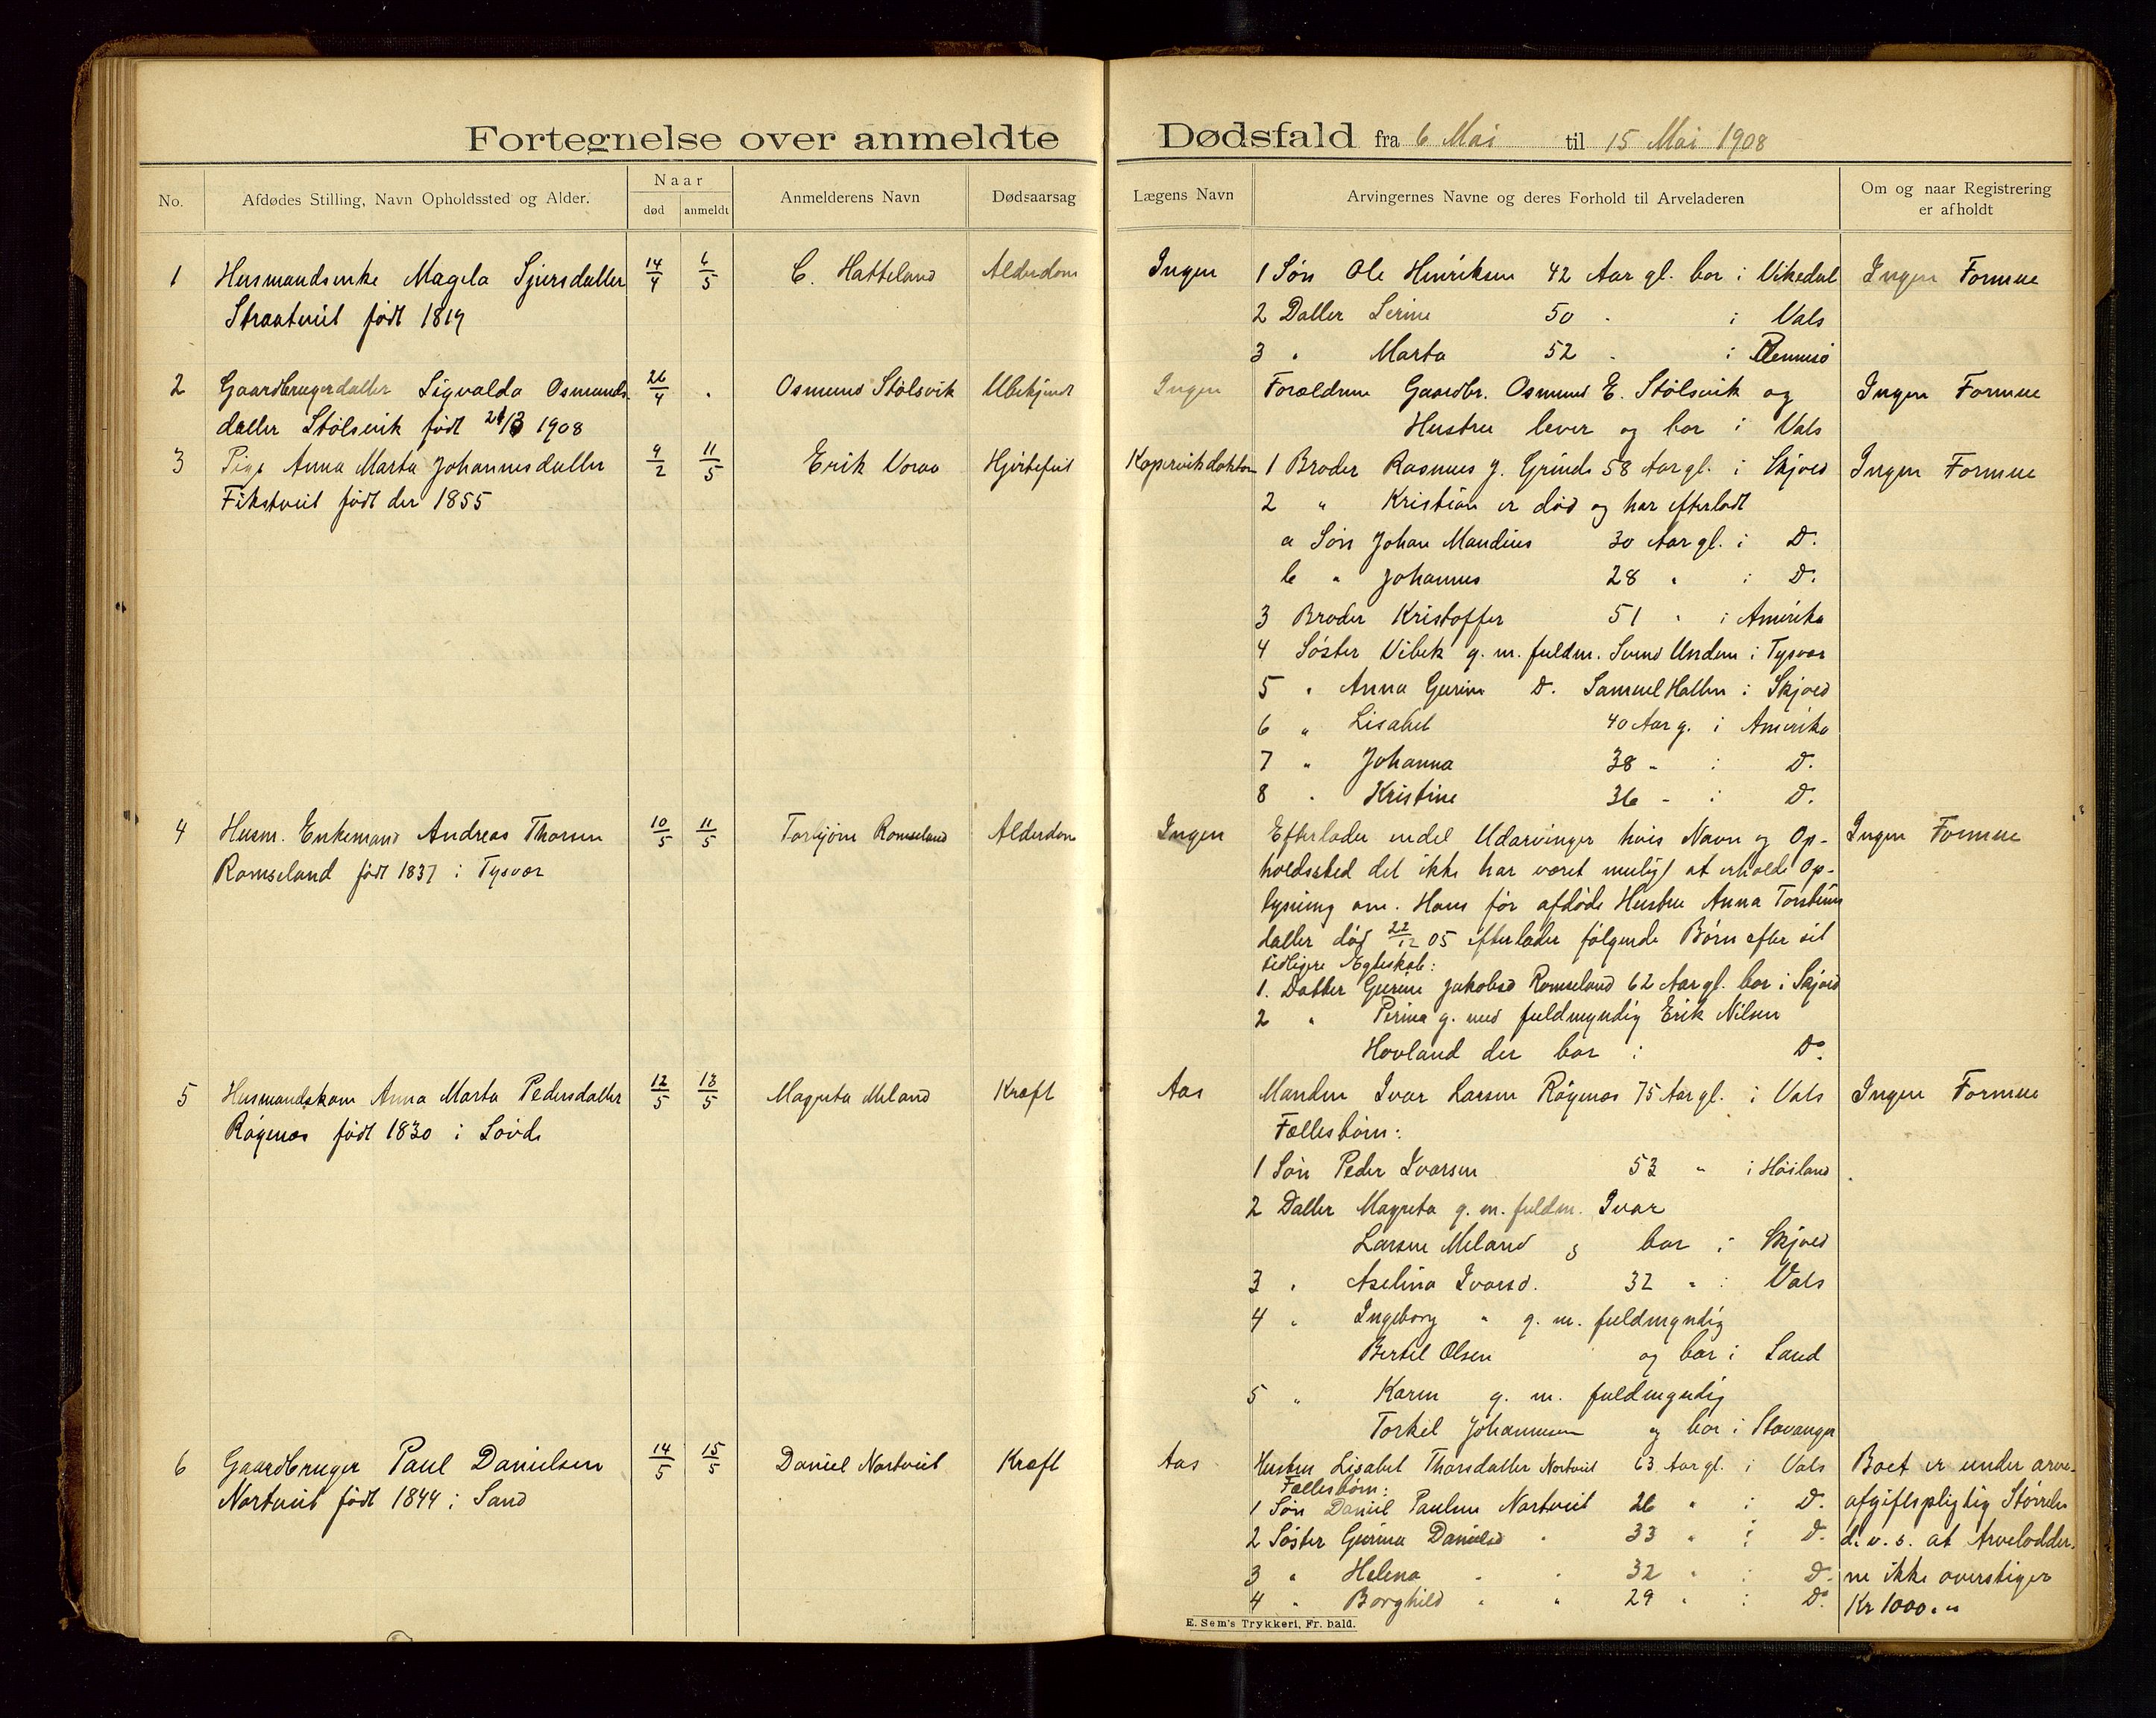 Fortegnelse over anmeldte Dødsfald fra 6 Mai til 15 Mai 1908
No.
Afdødes Stilling, Navn Opholdssted og Alder.
Naar
død
anmeldt
Anmelderens Navn
Dødsaarsag
Lægens Navn
Arvingernes Navne og deres Forhold til Arveladeren
Om og naar Registrering
er afholdt
1 Husmandsenke Magela Sjursdatter 14/4 6/5 C. Hatteland Alderdom Ingen 1 Søn Ole Henriksen 42 Aar gl. bor i Vikedal Ingen Formue
Straatveit født 1819 2 Datter Serine 50 " i Vats
3 " Marta 52 " i Rennesø
2 Gaardbrugerdatter Sigvalda Osmunds- 26/4 " Osmund Stølsvik Ubekjendt Ingen Forældrene Gaardbr. Osmund E. Stølsvik og Ingen Formue
datter Stølsvik født /3 1908 Hustru lever og bor i Vats
3 Pige Anna Marta Johannesdatter 9/2 11/5 Erik Voraa Hjertefeil Kopervikdoktor 1 Broder Rasmus J. Grinde 58 Aar gl. i Skjold Ingen Formue
Fikstveit født der 1855 2 " Kristian er død og har efterladt
a Søn Johan Mandius 30 Aar gl. i Do.
b " Johannes 28 " i Do.
3 Broder Kristoffer 51 " i Amerika
4 Søster Vibek g. m. fuldm. Svend Undem i Tysvær
5 " Anna Gurine Do. Samuel Hallen i Skjold
6 " Lisabet 40 Aar g. i Amerika
7 " Johanna 38 " i Do.
8 " Kristine 36 " i Do.
4 Husm. Enkemand Andreas Thorsen 10/5 11/5 Torbjørn Romseland Alderdom Ingen Efterlader endel Udarvinger hvis Navn og Op- Ingen Formue
Romseland født 1837 i Tysvær holdssted det ikke har været muligt at erholde Op-
lysning om. Hans før afdøde Hustru Anna Torsteins
datter død 22/12 05 efterlader følgende Børn efter sit
tidligere Egteskab:
1. Datter Gurine Jakobsd Romseland 62 Aar gl. bor i Skjold
2 " Perina g. med fuldmyndig Erik Nilsen
Hovland der bor i Do.
5 Husmandskone Anna Marta Pedersdatter 12/5 13/5 Magreta Meland Kræft Aas Manden Ivar Larsen Røgenes 75 Aar gl. i Vats Ingen Formue
Røgenes født 1830 i Sovde Fællesbørn:
1 Søn Peder Ivarsen 53 " i Høiland
2 Datter Magreta g. m. fuldm. Ivar
Larsen Meland og bor i Skjold
3 " Aselina Ivarsd. 32 " i Vats
4 " Ingeborg " g. m. fuldmyndig
Bertel Olsen og bor i Sand
5 " Karen g. m. fuldmyndig
Torkel Johannesen og bor i Stavanger
6 Gaardbruger Paul Danielsen 14/5 15/5 Daniel Nortveit Kræft Aas Hustru Lisabet Thorsdatter Nortveit 63 Aar gl. i Vats Boet er under arve-
Nortveit født 1844 i Sand Fællesbørn:
1 Søn Daniel Paulsen Nortveit 26 " i Do. afgiftspligtig Størrelse
2 Søster Gurina Danielsd " 33 " i Do. d. v. s. at Arvelodder-
3 " Helena " " 32 " i Do. ne ikke overstiger
4 " Borghild " " 29 " i Do. Kr 1000."
E. Sem's Trykkeri, Fr. hald.